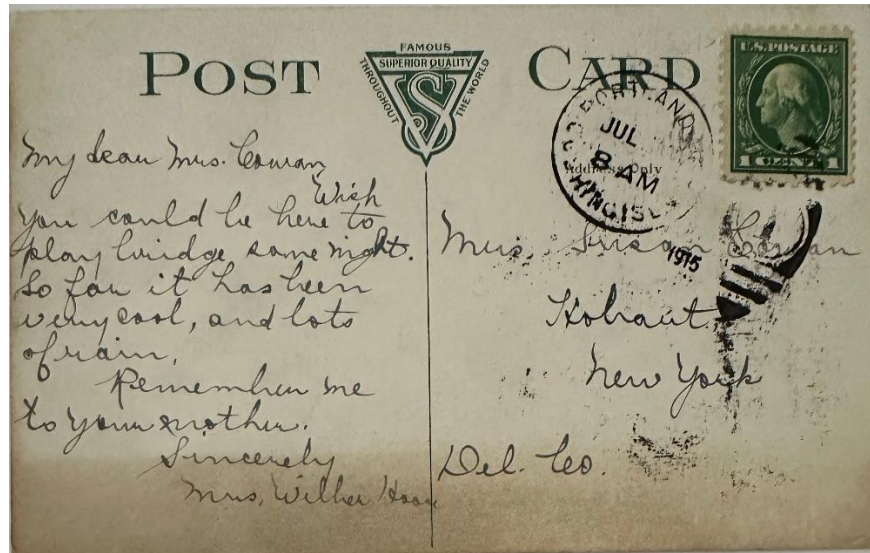 POST CARD
FAMOUS
SUPERIOR QUALITY
THROUGHOUT
THE WORLD
S
U.S. POSTAGE
1 CENT 1
PORTLAND
JUL
8 AM
1915
Address Only
My dear Mrs. Cowan
Wish
you could be here to
play bridge some night.
So far it has been
very cool, and lots
of rain.
Remember me
to your mother.
Sincerely
Mrs. Wilber
Mrs. Susan Cowan
Hobart
New York
Del. Co.